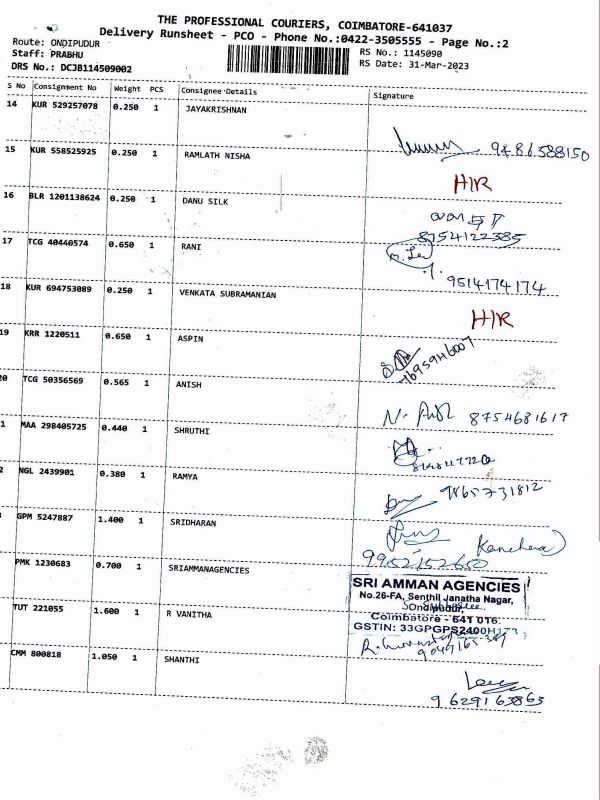 THE PROFESSIONAL COURIERS, COIMBATORE-641037
Delivery Runsheet - PCO - Phone No.:0422-3505555 - Page No.:2
Route: ONDIPUDUR
Staff: PRABHU
DRS No.: DCJB114509002
RS No.: 1145090
RS Date: 31-Mar-2023
S No Consignment No Weight PCS Consignee Details Signature
14 KUR 529257078 0.250 1 JAYAKRISHNAN
9486588150
15 KUR 558525925 0.250 1 RAMLATH NISHA
H/R
16 BLR 1201138624 0.250 1 DANU SILK
8754122385
17 TCG 40440574 0.650 1 RANI
9514174174
18 KUR 694753089 0.250 1 VENKATA SUBRAMANIAN
H/R
19 KRR 1220511 0.650 1 ASPIN
7695946007
20 TCG 50356569 0.565 1 ANISH
8754681617
1 MAA 298405725 0.440 1 SHRUTHI
2 NGL 2439901 0.380 1 RAMYA
9865731812
GPM 5247887 1.400 1 SRIDHARAN
9952152650
PMK 1230683 0.700 1 SRIAMMANAGENCIES
SRI AMMAN AGENCIES
No.26-FA, Senthil Janatha Nagar,
Ondipudur,
Coimbatore - 641 016.
GSTIN: 33GPGPS2400H1
TUT 221055 1.600 1 R VANITHA
CMM 800818 1.050 1 SHANTHI
9629163863